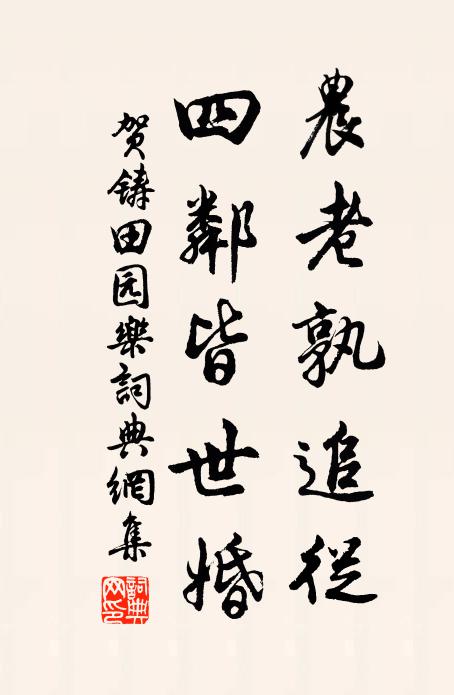 農老孰追從
四鄰皆世婚
贺鑄田园樂詞典網集
詞典網印